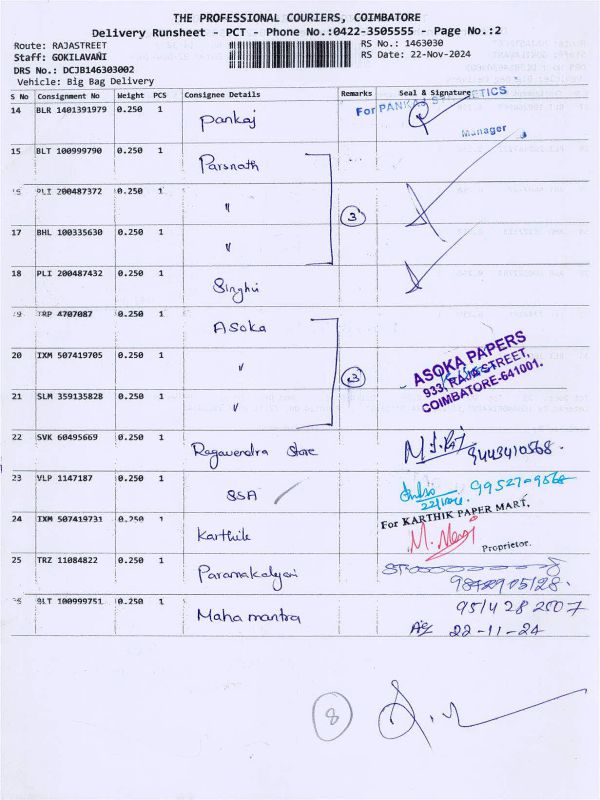 THE PROFESSIONAL COURIERS, COIMBATORE
Delivery Runsheet - PCT - Phone No.:0422-3505555 - Page No.:2
Route: RAJASTREET RS No.: 1463030
Staff: GOKILAVANI RS Date: 22-Nov-2024
DRS No.: DCJB146303002
Vehicle: Big Bag Delivery
S No Consignment No Weight PCS Consignee Details Remarks Seal & Signature
14 BLR 1401391979 0.250 1 Pankaj For PANKAJ
Manager
15 BLT 100999790 0.250 1 Parsnath
16 PLI 200487372 0.250 1 " 3
17 BHL 100335630 0.250 1 "
18 PLI 200487432 0.250 1 Singhvi
19 TRP 4707087 0.250 1 Asoka
20 IXM 507419705 0.250 1 " 3 ASOKA PAPERS
933, RAJA STREET,
21 SLM 359135828 0.250 1 " COIMBATORE-641001.
22 SVK 60495669 0.250 1 Ragavendra Store 9443410568.
23 VLP 1147187 0.250 1 SSA 99527-09568
22/11/24.
24 IXM 507419731 0.250 1 Karthik For KARTHIK PAPER MART,
Proprietor.
25 TRZ 11084822 0.250 1 Paramakalyani
26 BLT 100999751 0.250 1 Maha mantra 9514282507
22-11-24
8